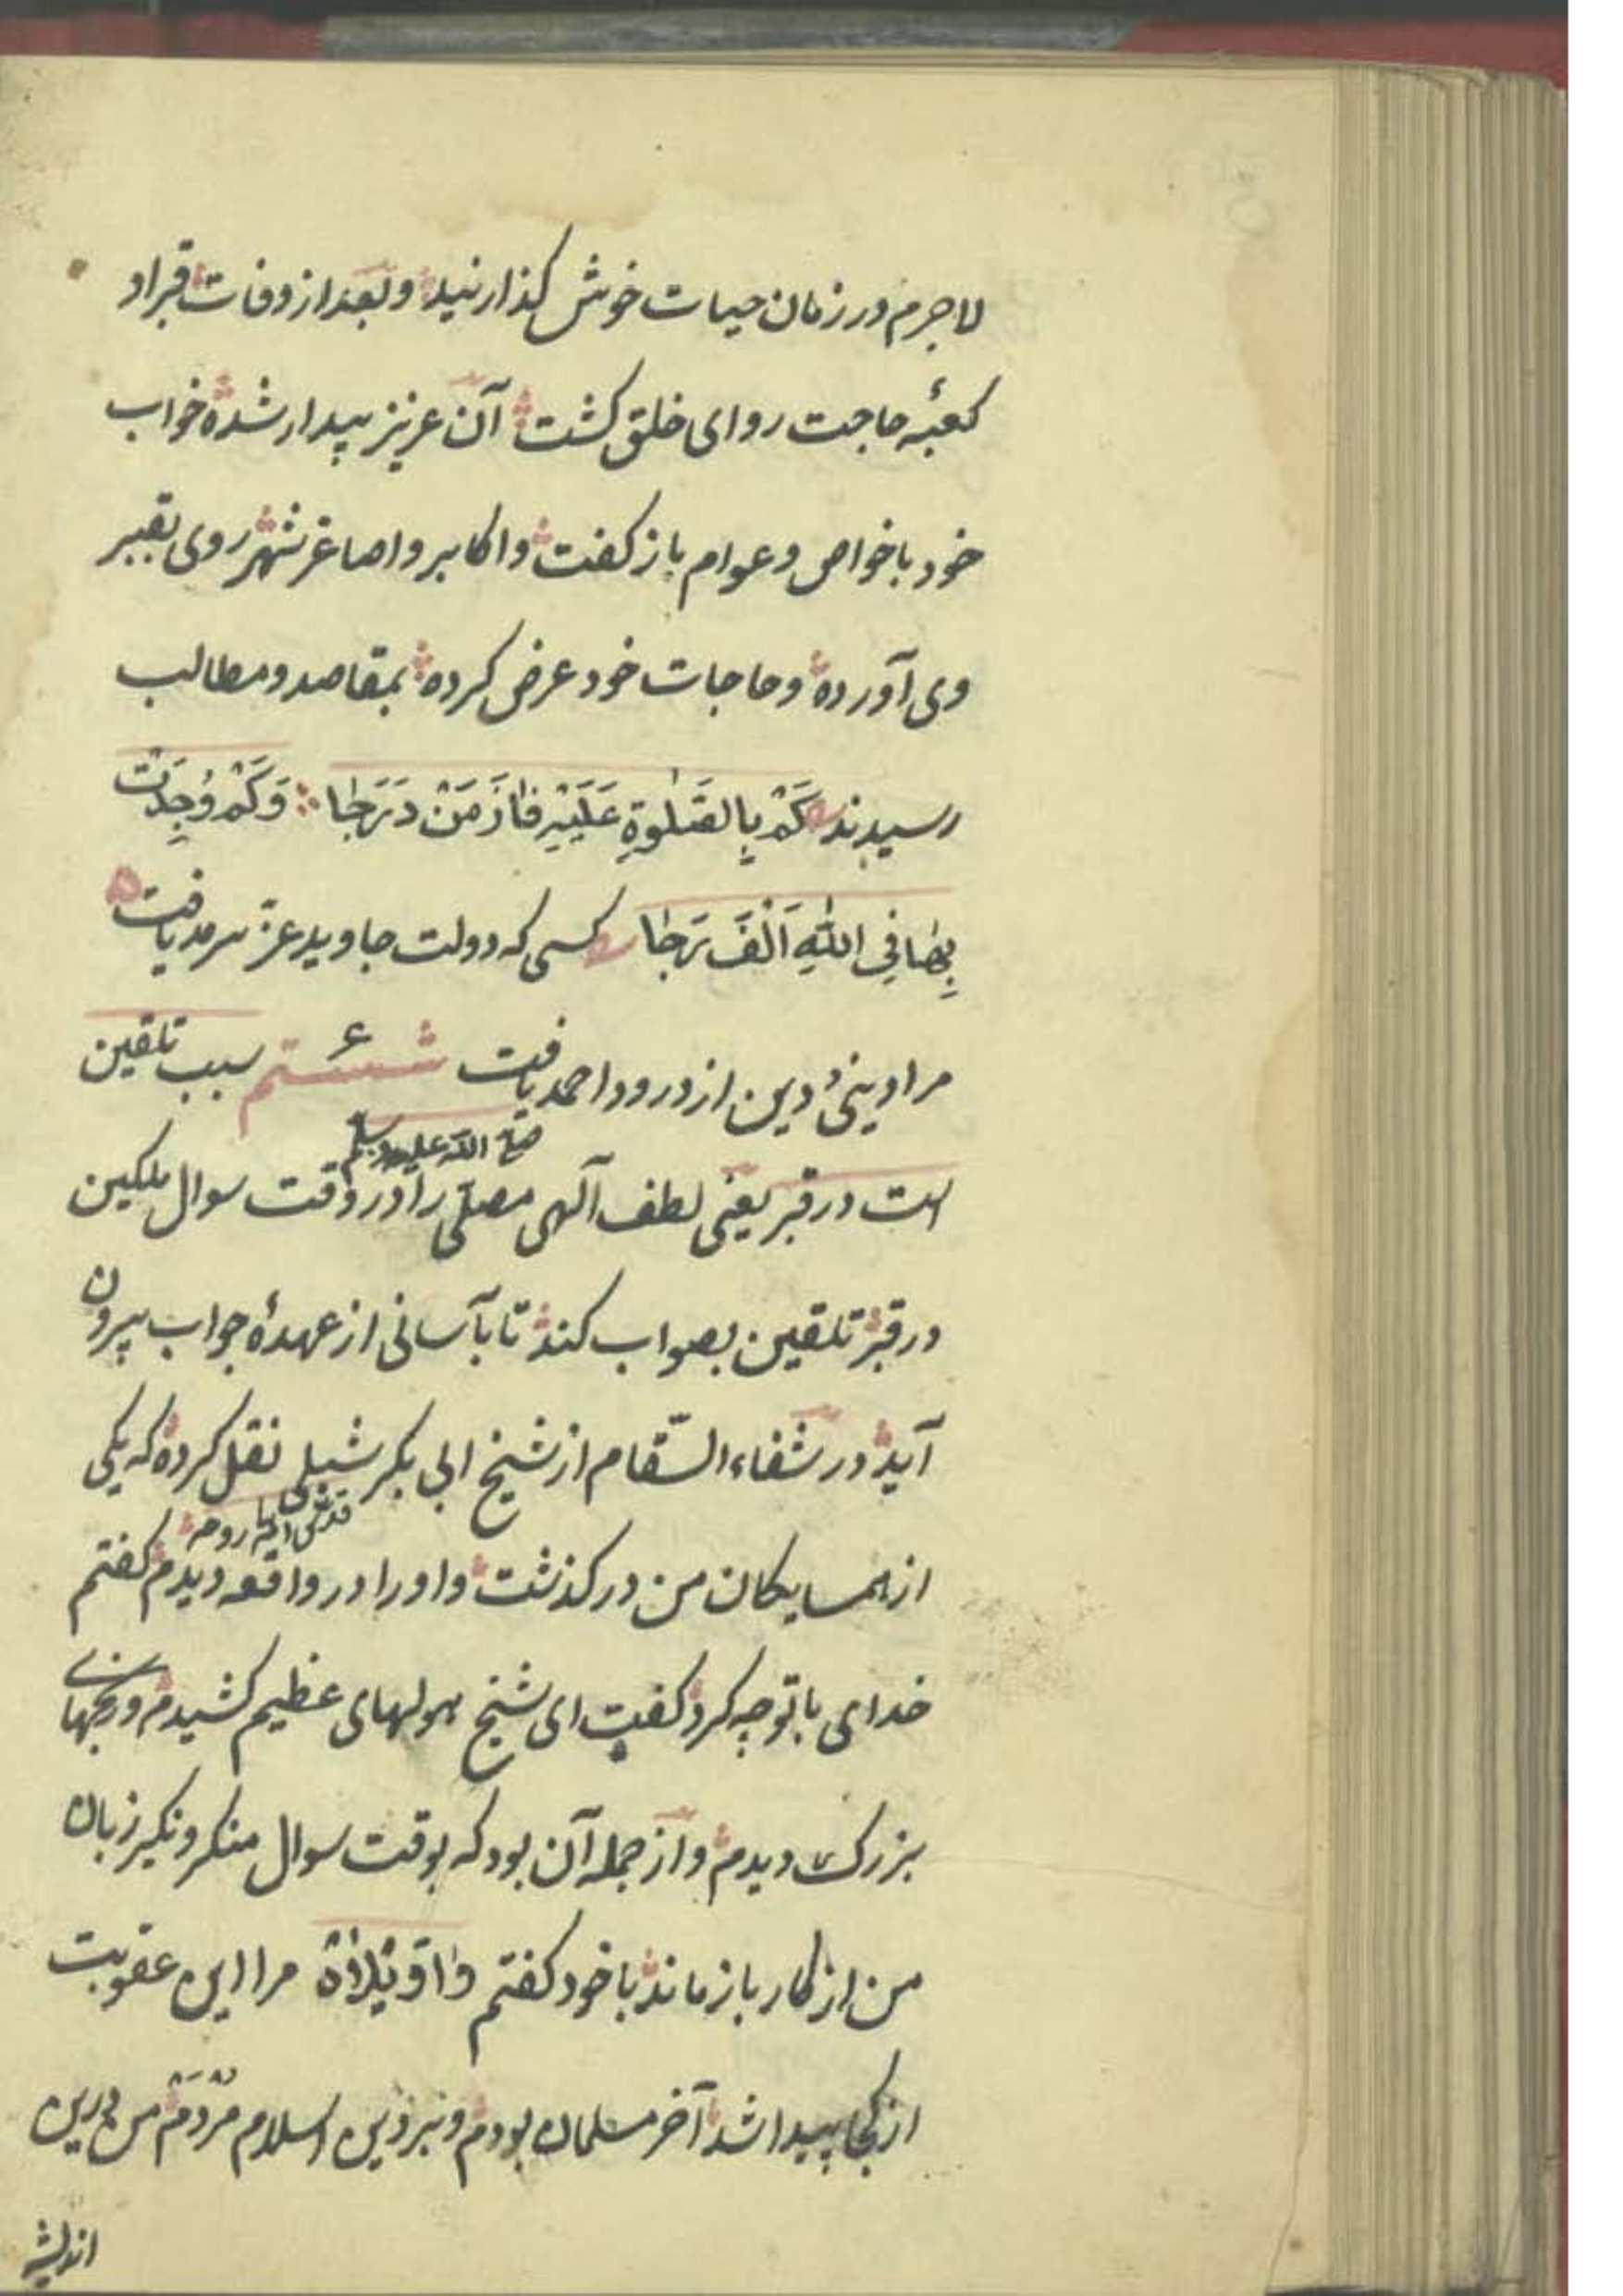 لاجرم در زمان حیات خوش گذارنید و بعد از وفات قبر او
کعبهٔ حاجت روای خلق گشت آن عزیز بیدار شده خواب
خود با خواص و عوام باز گفت و اکابر و اصاغر شهر روی بقبر
وی آورده و حاجات خود عرض کرده بمقاصد و مطالب
رسیدند كَمْ بِالصَّلٰوةِ عَلَيْهِ فَازَ مَنْ دَرَجَا وَكَمْ وُجِدَتْ
بِهَا فِي اللّٰهِ اَلْفُ رَجَا کسی که دولت جاوید عزّ سرمد یافت
مراد دینی و دین از درود احمد یافت ششم ۶ سبب تلقین
صلی الله علیه وسلم
است در قبر یعنی لطف آلهی مصلّی را در وقت سوال ملکین
در قبر تلقین بصواب کند تا بآسانی از عهدهٔ جواب بیرون
آید در شفاء السّقام از شیخ ابی بکر شبلی نقل کرده که یکی
قدس الله روحه
از همسایکان من در کذشت و اورا در واقعه دیدم کفتم
خدای با تو چه کرد کفت ای شیخ هولهای عظیم کشیدم و رنجهای
بزرک دیدم و از جمله آن بود که بوقت سوال منکر و نکیر زبان
من از کار باز ماند با خود کفتم وا وَيْلَاهْ مرا این عقوبت
از کجا پیدا شد آخر مسلمان بودم و بر دین اسلام مُردَم من درین
اندیشه